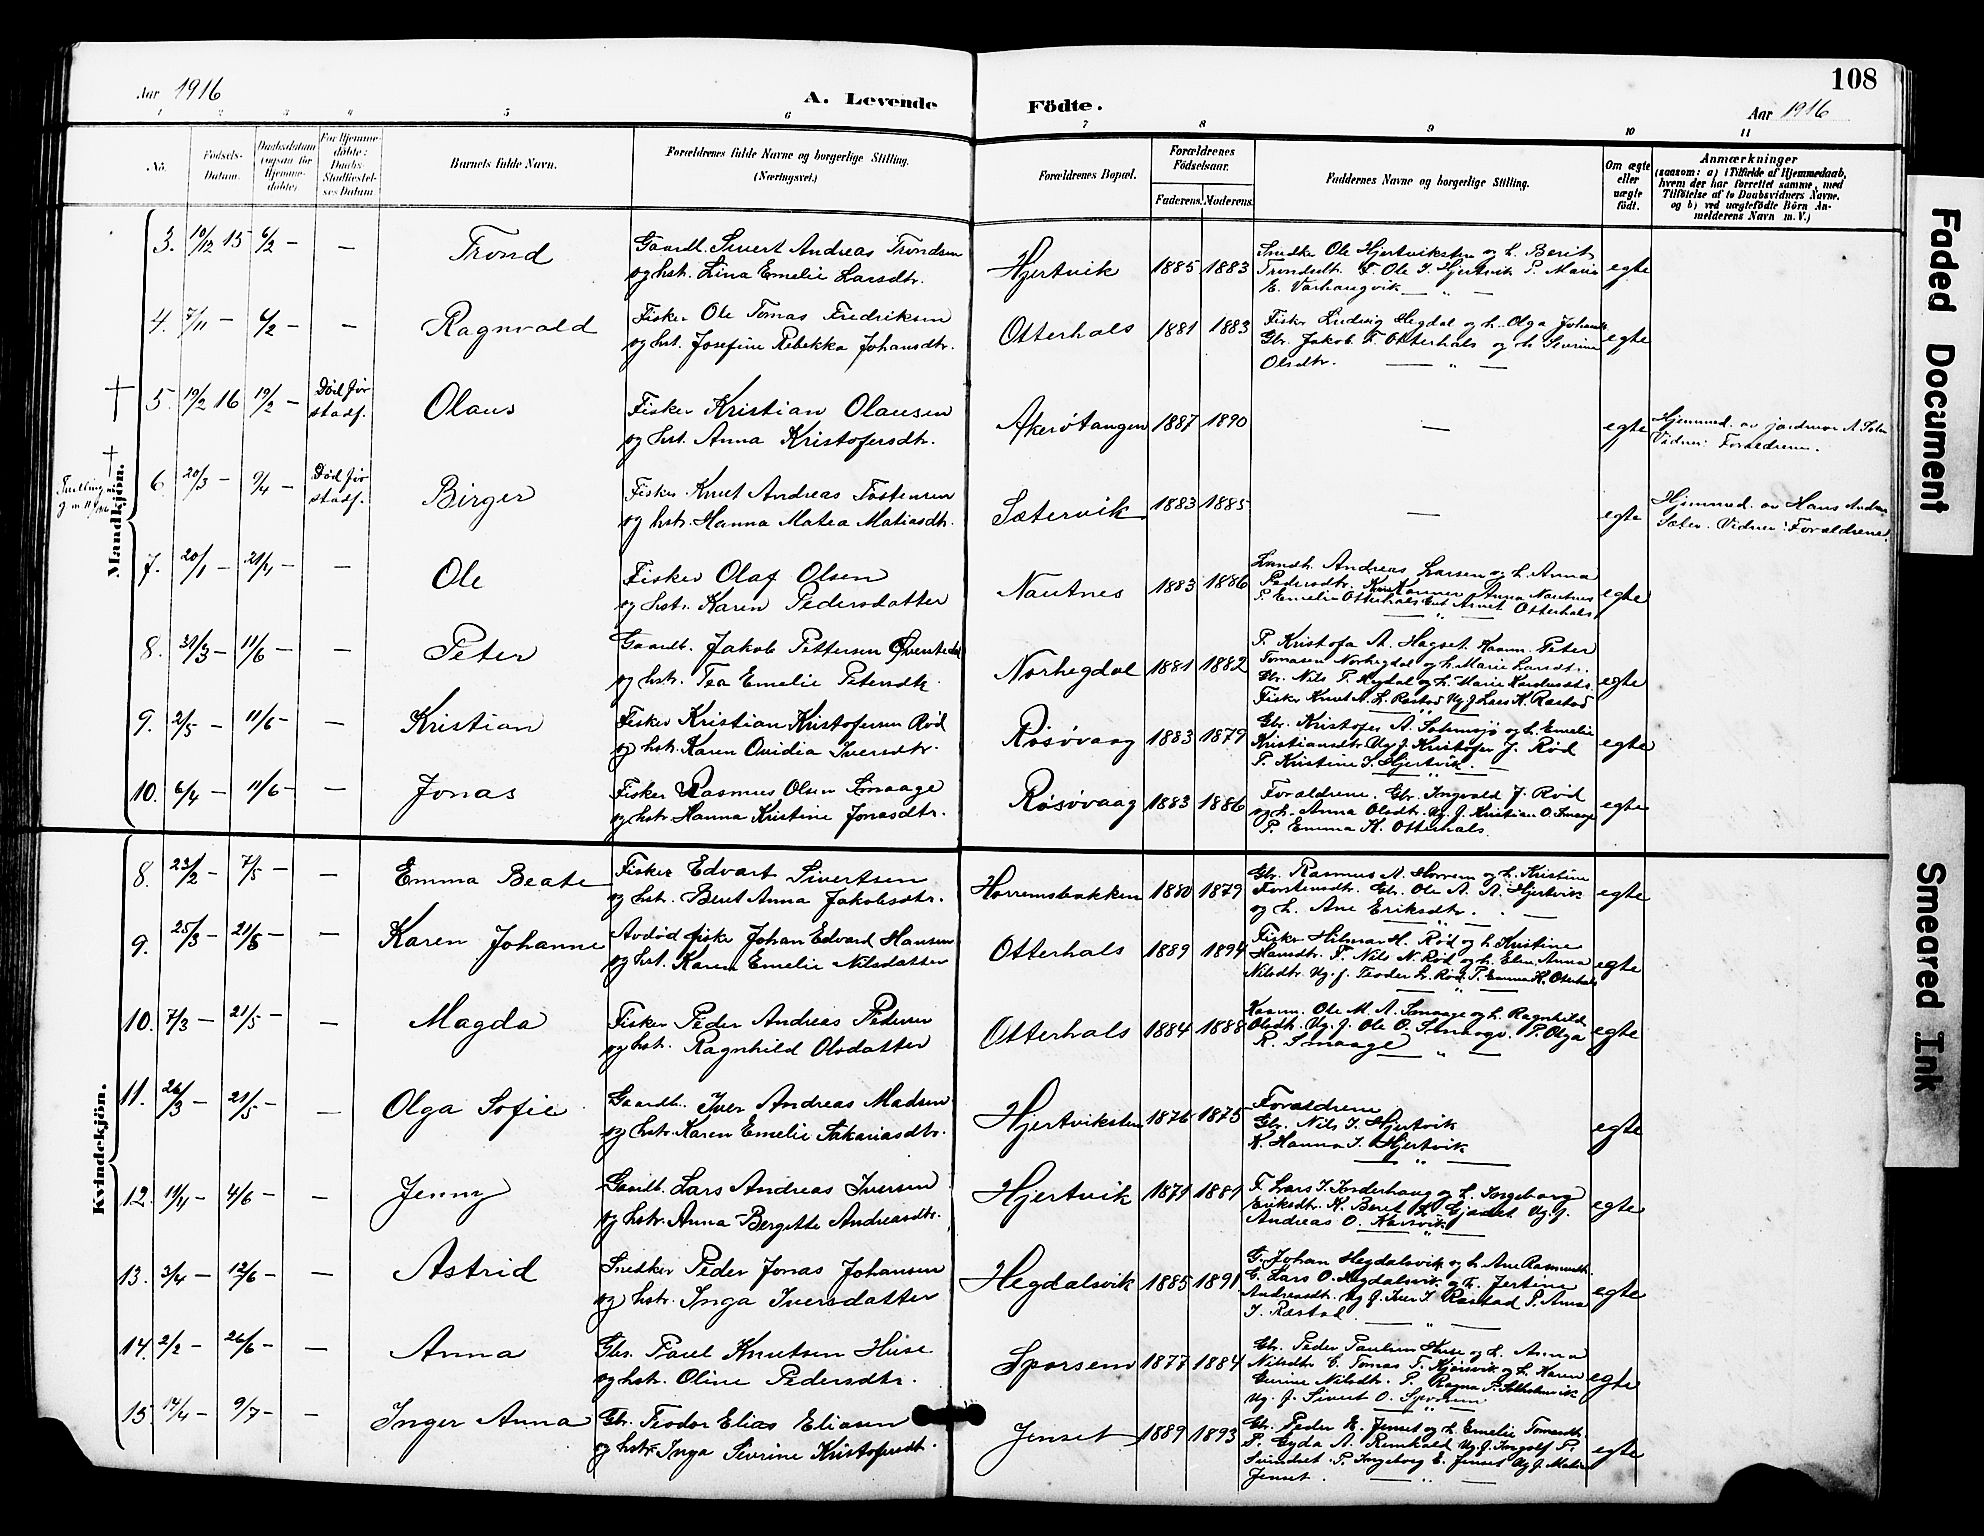 Aar 1916
A. Levende
Födte.
108
Aar 1916
1 2 3 4 5 6 7 8 9 10 11
No.
Födsels-
Datum.
Daabsdatum
(ogsaa for
Hjemme-
döbte)
For Hjemme-
döbte:
Daabs-
Stadfæstel-
ses Datum.
Barnets fulde Navn.
Forældrenes fulde Navne og borgerlige Stilling.
(Næringsvei.)
Forældrenes Bopæl.
Forældrenes
Födselsaar.
Faderens. Moderens.
Faddernes Navne og borgerlige Stilling.
Om ægte
eller
uægte
født.
Anmærkninger
(saasom: a) i Tilfælde af Hjemmedaab,
hvem der har forrettet samme, med
Tilföielse af to Daabsvidners Navne.
og b) ved uægtefödte Börn An-
melderens Navn m. V.)
Mandkjön.
3. 19/12 15 6/2 – – Trond
Gaardb. Sivert Andreas Trondsen
og hst. Lina Emelie Larsdtr.
Hjertvik 1885 1883
Snedker Ole Hjertviksten og h. Berit
Trondsdtr. F. Ole I. Hjertvik P. Marie
E. Varhaugvik — " —
egte
4. 7/11 – 6/2 – – Ragnvald
Fisker Ole Tomas Fredriksen
og hst. Josefine Rebekka Johansdtr.
Otterhals 1881 1883
Fisker Ludvig Hegdal og h. Olga Johans
Gbr. Jakob F. Otterhals og h. Sivrine
Olsdtr. — " —
egte
† 5. 19/2 16 19/2 – Død før
stadf.
Olaus
Fisker Kristian Olausen
og hst. Anna Kristofersdtr.
Akerøtangen 1887 1890 — egte
Hjemmed. av jordmor A. Sæter
Vidner: Forældrene.
† 6. 20/3 – 9/4 – Død før
stadf.
Birger
Fisker Knut Andreas Tostensen
og hstr. Hanna Matea Matiasdtr.
Sætervik 1883 1885 — egte
Hjemmed. av Hans Andrea
Sæter. Vidner: Forældrene.
7. 20/1 – 21/4 – – Ole
Fisker Olaf Olsen
og hstr. Karen Pedersdatter
Nautnes 1883 1886
Landh. Andreas Larsen og h. Anna
Pedersdtr. Anna Nautnes
P. Emelie Otterhals Arnet Otterhals
egte
8. 31/3 – 11/6 – – Peter
Gaardb. Jakob Pettersen
og hstr. Tea Emelie Petersdtr.
Norhegdal 1881 1882
P. Kristofa A. Hagset. Kaarm. Peter
Tomasen Norhegdal og h. Marie Larsdtr.
Gbr. Nils P. Hegdal og h. Marie
Fisker Knut N. L. Rastad Ug. J. Lars K. Rastad
egte
9. 2/5 – 11/6 – – Kristian
Fisker Kristian Kristofersen Rød
og hstr. Karen Ovidia Iversdtr.
Røsøvaag 1883 1879
Gbr. Kristofer A. Solemsjø og h. Emelie
Kristiansdtr. Ug. J. Kristofer J. Rød
P. Kristine S. Hjertvik. — " —
egte
10. 6/4 – 11/6 – – Jonas
Fisker Rasmus Olsen Smaage
og hstr. Hanna Kristine Jonasdtr.
Røsøvaag 1883 1886
Forældrene. Gbr. Ingvald J. Rød
og h. Anna Olsdtr. Ug. J. Kristian O. Smaage
P. Emma K. Otterhals.
egte
Kvindekjön.
8. 23/2 – 7/5 – – Emma Beate
Fisker Edvart Sivertsen
og hstr. Beret Anna Jakobsdtr.
Harremsbakken 1880 1879
Gbr. Rasmus A. Harrem og h. Kristine
Torstensdtr. Gbr. Ole A. A. Hjertvik
og h. Ane Eriksdtr. — " —
egte
9. 25/3 – 21/5 – – Karen Johanne
Avdød fiske Johan Edvard Hansen
og hst. Karen Emelie Nilsdatter
Otterhals 1889 1894
Fisker Hilmar H. Rød og h. Kristine
Hansdtr. F. Nils N. Rød og h. Elen Anna
Nilsdtr. Ug. J. Teoder L. Rød P. Emma K. Oterhals
egte
10. 7/3 – 21/5 – – Magda
Fisker Peder Andreas Pedersen
og hstr. Ragnhild Olsdatter
Otterhals 1884 1888
Kaarm. Ole M. A. Smaage og h. Ragnhild
Olsdtr. Ug. J. Ole O. Smaage. P. Olga
R. Smaage — " —
egte
11. 26/3 – 21/5 – – Olga Sofie
Gaardb. Iver Andreas Madsen
og hstr. Karen Emelie Sakariasdtr.
Hjertviksten 1876 1875
Forældrene
Gbr. Nils I. Hjertvik
K. Hanna I. Hjertvik
— " —
egte
12. 19/4 – 4/6 – – Jenny
Gaardb. Lars Andreas Iversen
og hstr. Anna Bergitte Andreasdtr.
Hjertvik 1879 1881
F. Lars I. Inderhaug og h. Ingeborg
Eriksdtr. K. Beret L. Gjadet. Ug. J.
Andreas O. Karsvik — " —
egte
13. 3/4 – 12/6 – – Astrid
Snedker Peder Jonas Johansen
og hstr. Inga Iversdatter
Hegdalsvik 1885 1891
G. Johan Hegdalsvik og h. Ane Rasmusdtr.
G. Lars O. Hegdalsvik og h. Jertine
Andreasdtr. Ug. J. Iver I. Rastad P. Anna
I. Rastad. — " —
egte
14. 2/2 – 26/6 – – Anna
Gbr. Paul Knutsen Huse
og hstr. Oline Pedersdtr.
Sporsem 1877 1884
Gbr. Peder Paulsen Huse og h. Anna
Nilsdtr. G. Tomas T. Kjørsvik og h. Karen
Gurine Nilsdtr. P. Ragna P.
Ug. J. Sivert O. Sporsem
egte
15. 14/4 – 9/7 – – Inger Anna
Gbr. Teodor Elias Eliasen
og hstr. Inga Sivrine Kristofersdtr.
Jenset 1889 1893
Gbr. Peder E. Jenset og h. Emelie Tomasdtr.
P. Gyda A. Remkald Ug. J. Ingolf P.
Sundset. P. Ingeborg E. Jenset Ug. J.
Jenset. — " —
egte
Faded Document
Smeared Ink